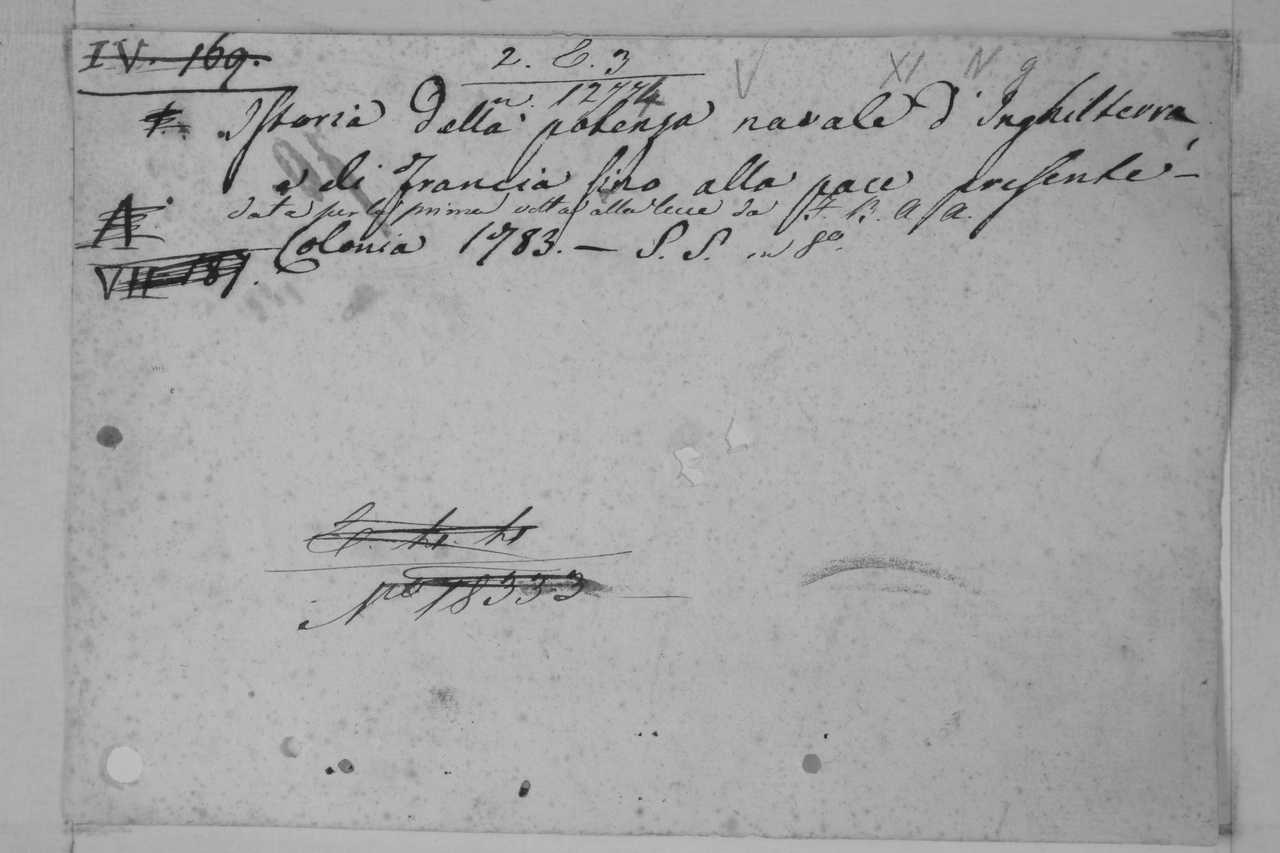 IV. 169.
2. C. 3
n. 12774
V XI N 9
Istoria della potenza navale d'Inghilterra
e di Francia sino alla pace presente
data per la prima volta alla luce da F. B. A. A.
Colonia 1783. — S. S. in 8º
A
VII 187.
Nº 18333